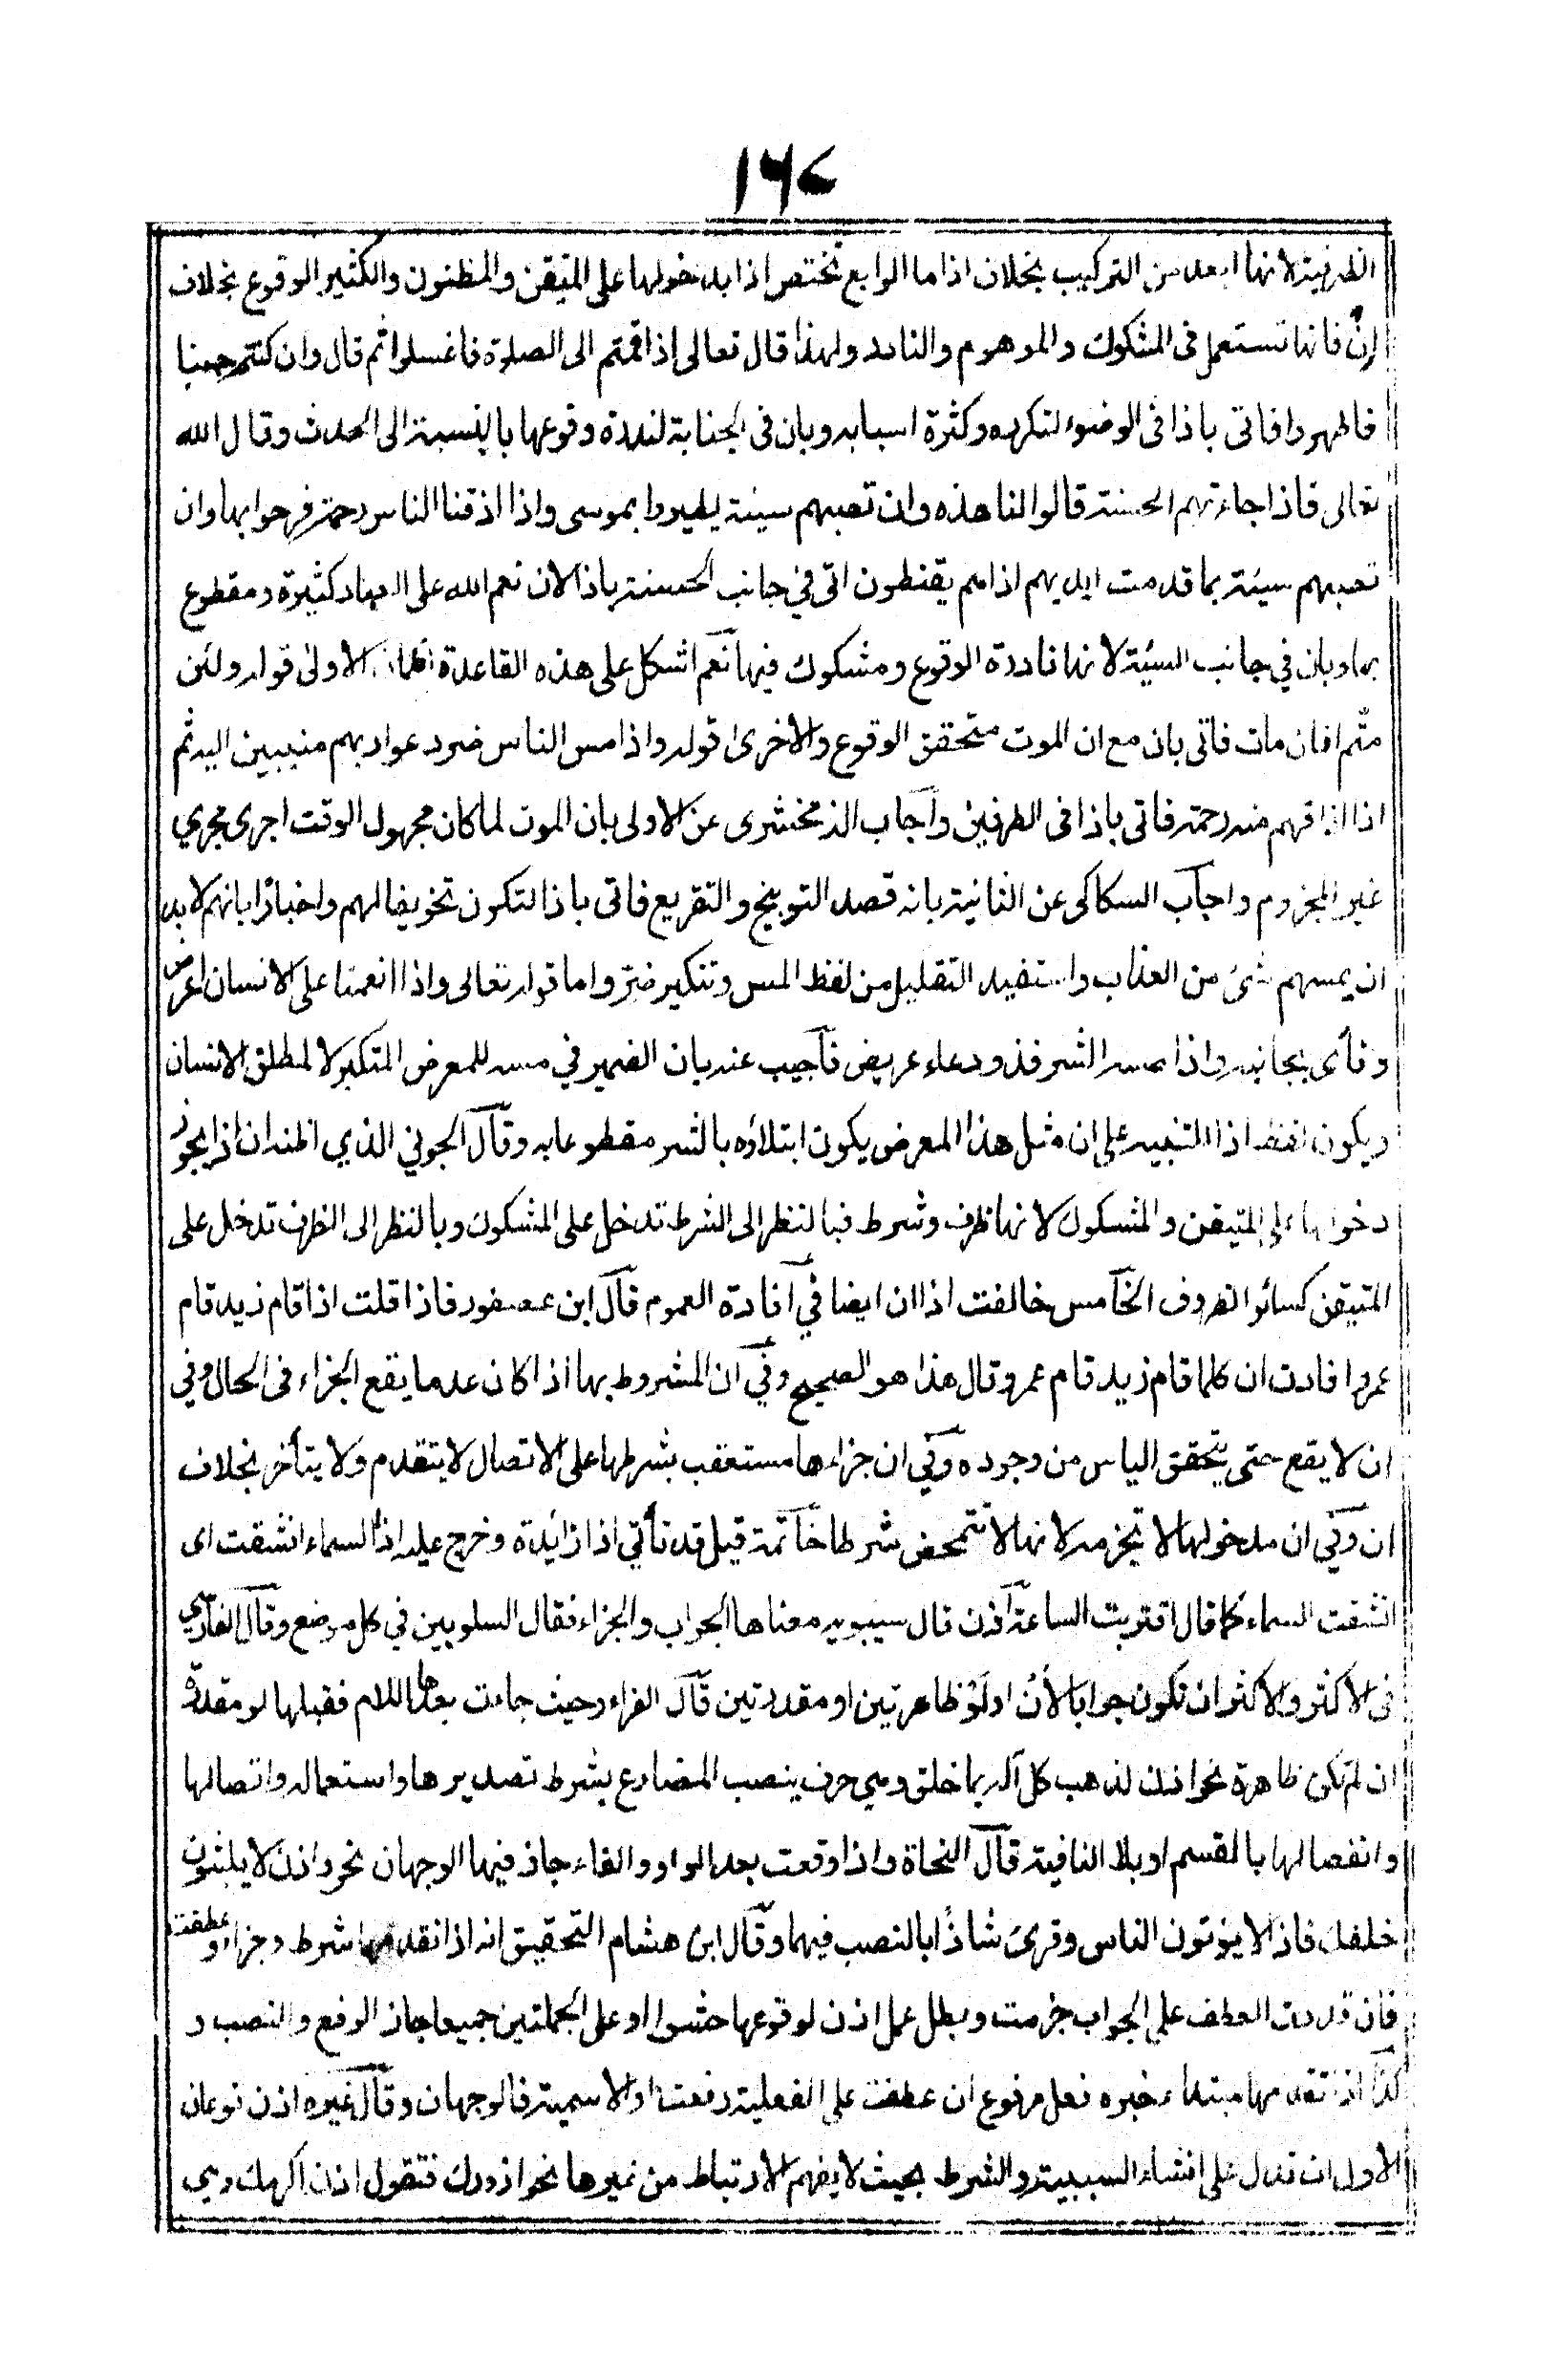 ١٦٧
الظرفية لانها ابعد من التركيب بخلاف اذا ما الرابع تختص اذا بدخولها على المتيقن والمظنون والكثير الوقوع بخلاف
ان فانها تستعمل فى المشكوك والموهوم والنادر ولهذا قال تعالى اذا قمتم الى الصلوة فاغسلوا ثم قال وان كنتم جنبا
فاطهروا فاتى باذا فى الوضوء لتكرره وكثرة اسبابه وبان فى الجنابة لندرة وقوعها بالنسبة الى الحدث وقال الله
تعالى فاذا جاءتهم الحسنة قالوا لنا هذه وان تصبهم سيئة يطيروا بموسى واذا اذقنا الناس رحمة فرحوا بها وان
تصبهم سيئة بما قدمت ايديهم اذا هم يقنطون اتى في جانب الحسنة باذا لان نعم الله على العباد كثيرة ومقطوع
بها وبان في جانب السيئة لانها نادرة الوقوع ومشكوك فيها نعم اشكل على هذه القاعدة الاولى قوله ولئن
متم افان مات فاتى بان مع ان الموت متحقق الوقوع والاخرى قوله واذا مس الناس ضر دعوا ربهم منيبين اليه ثم
اذا اذاقهم منه رحمة فاتى باذا فى الطرفين واجاب الزمخشرى عن الاولى بان الموت لما كان مجهول الوقت اجرى مجري
غير المجزوم واجاب السكاكى عن الثانية بانه قصد التوبيخ والتقريع فاتى باذا لتكون تخويفا لهم واخبارا بانهم لا بد
ان يمسهم شئ من العذاب واستفيد التقليل من لفظ المس وتنكير ضر واما قوله تعالى واذا انعمنا على الانسان اعرض
ونأى بجانبه واذا مسه الشر فذو دعاء عريض فاجيب عنه بان الضمير في مسه للمعرض المتكبر لا لمطلق الانسان
ويكون لفظ اذا للتنبيه على ان مثل هذا المعرض يكون ابتلاؤه بالشر مقطوعا به وقال الجوني الذي اظنه ان اذا يجوز
دخولها على المتيقن والمشكوك لانها ظرف وشرط فبالنظر الى الشرط تدخل على المشكوك وبالنظر الى الظرف تدخل على
المتيقن كسائر الظروف الخامس خالفت اذا ان ايضا في افادة العموم قال ابن عصفور فاذا قلت اذا قام زيد قام
عمرو افادت ان كلما قام زيد قام عمرو قال هذا هو الصحيح وفي ان المشروط بها اذا كان عدما يقع الجزاء فى الحال وفي
ان لا يقع حتى يتحقق الياس من وجوده وفي ان جزاءها مستعقب بشرطها على الاتصال لا يتقدم ولا يتأخر بخلاف
ان وفي ان مدخولها لا تجزمه لانها لا تتمحض شرطا خاتمة قيل قد تأتي اذا زائدة وخرج عليه اذا السماء انشقت اى
انشقت السماء كما قال اقتربت الساعة اذن قال سيبويه معناها الجواب والجزاء فقال السلوبين في كل موضع وقال الفارسي
فى الاكثر والاكثر ان تكون جوابا لان او لو ظاهرتين او مقدرتين قال الفراء وحيث جاءت بعدها اللام فقبلها لو مقدرة
ان لم تكن ظاهرة نحو اذن لذهب كل آله بما خلق وهي حرف ينصب المضارع بشرط تصديرها واستعماله واتصالها
وانفصالها بالقسم او بلا النافية قال النحاة واذا وقعت بعد الواو والفاء جاز فيها الوجهان نحو واذن لا يلبثون
خلفك فاذا لا يؤتون الناس وقرئ شاذا بالنصب فيهما وقال ابن هشام التحقيق انه اذا تقدمها شرط وجزاء وعطفت
فان قدرت العطف على الجواب جزمت وبطل عمل اذن لوقوعها حشوا او على الجملتين جميعا جاز الرفع والنصب و
كذا اذا تقدمها مبتداء خبره فعل مرفوع ان عطفت على الفعلية رفعت او الاسمية فالوجهان وقال غيره اذن نوعان
الاول ان تدل على انشاء السببية والشرط بحيث لا يفهم الارتباط من غيرها نحو ازورك فتقول اذن اكرمك وهي